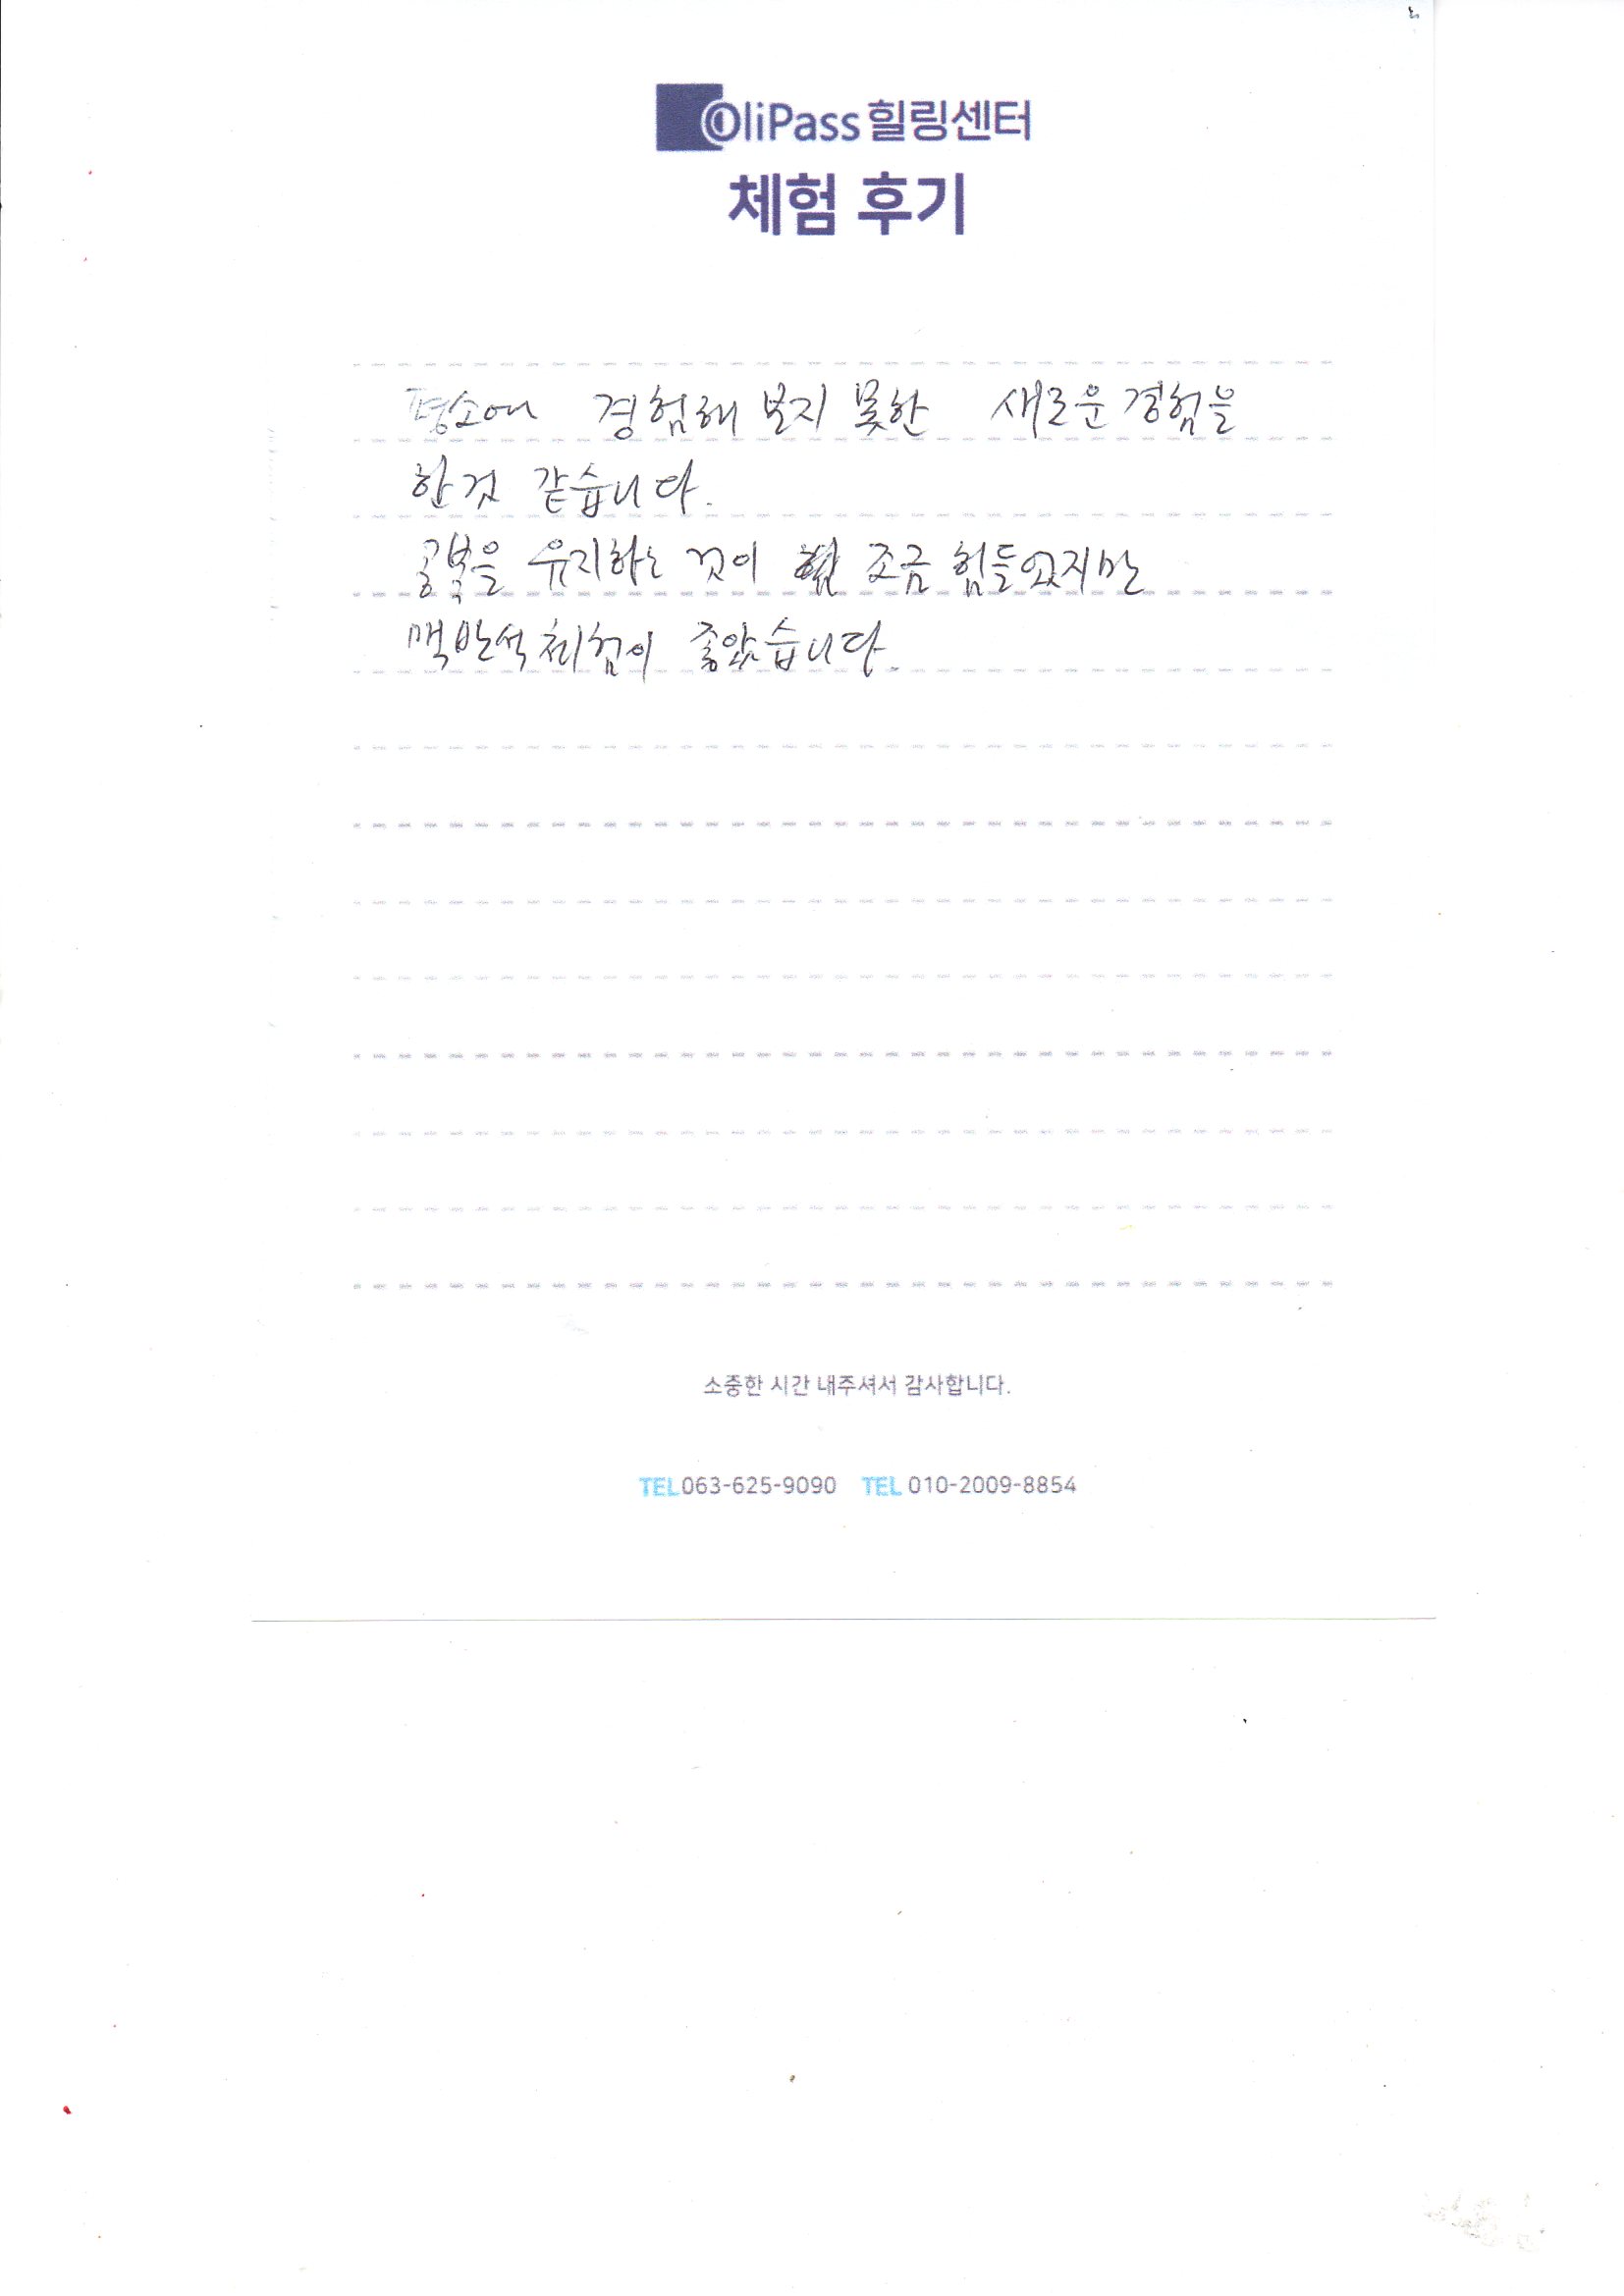 OliPass 힐링센터
체험 후기
평소에 경험해 보지 못한 새로운 경험을
한것 같습니다.
공복을 유지하는 것이 조금 힘들었지만
맥반석 체험이 좋았습니다.
소중한 시간 내주셔서 감사합니다.
TEL 063-625-9090 TEL 010-2009-8854